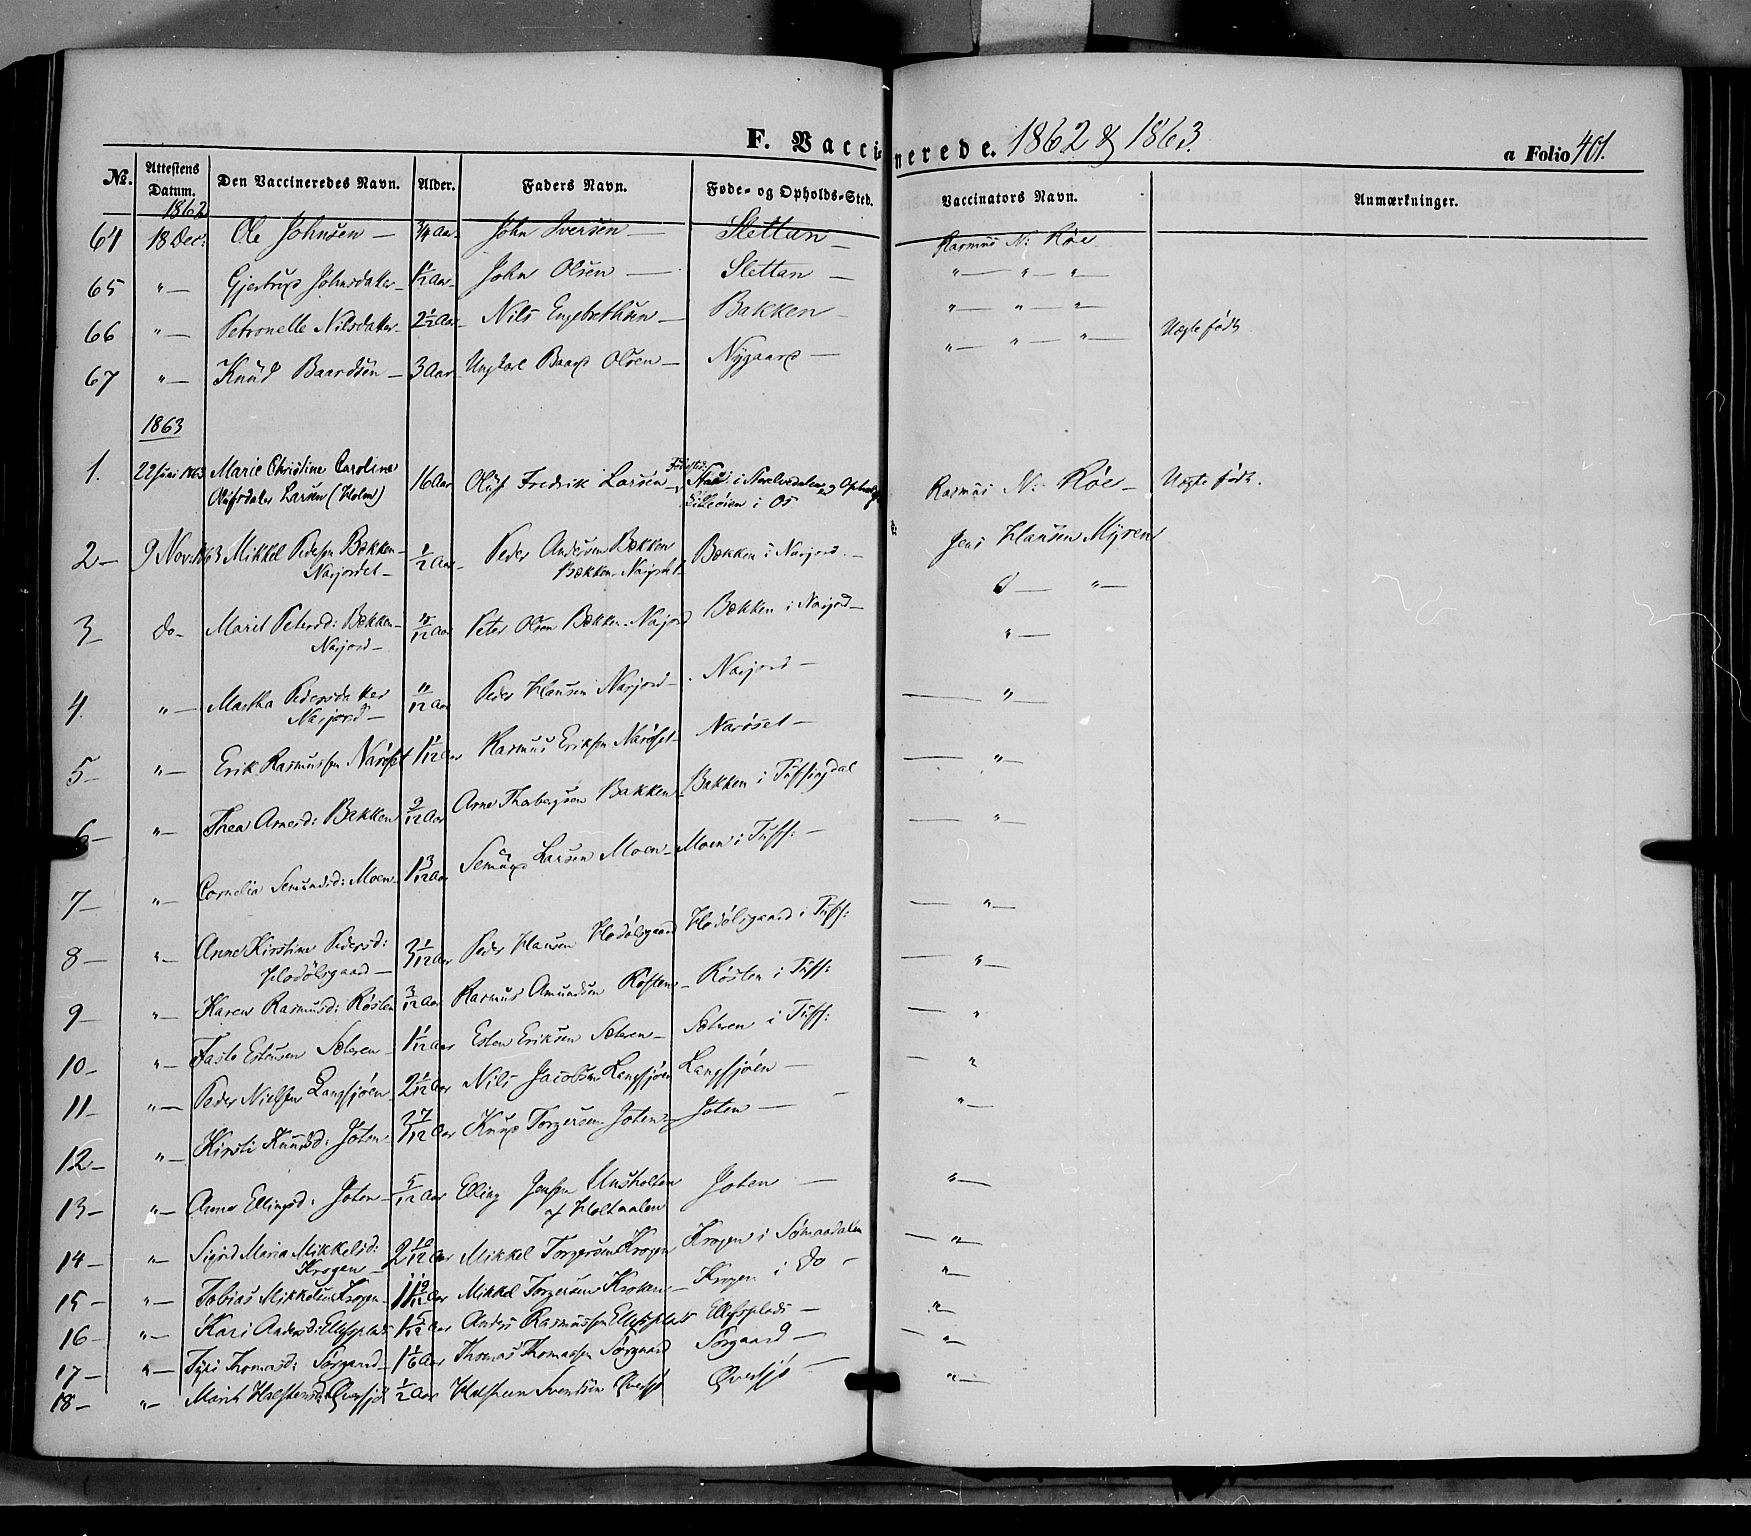 F. Vaccinerede. 1862 & 1863.
a Folio 401.
No. Attestens Datum. Den Vaccineredes Navn. Alder. Faders Navn. Føde- og Opholds-Sted. Vaccinators Navn. Anmærkninger.
1862
64 18 Dec: Ole Johnsen — 3/4 Aar — John Iversen — Slettan — Rasmus N: Røe
65 " — Gjertrud Johnsdatter — 1 1/2 Aar — John Olsen — Slettan — " — " — " —
66 " — Petronelle Nilsdatter 2 1/2 Aar Nils Engebrethsen — Bakken — " — " — " —
67 " — Knud Baardsen — 3 Aar Ungkarl Baard Olsen — Nygaard — " — " — " — Uægte født.
1863
1. 22 Juni 1863 Marie Christine Caroline 16 Aar Oluf Fredrik Larsen — Fødested:
Olufsdatter Larsen (Holm) Lilleøien i Os Rasmus N: Røe — Uægte født.
2 — 9 Nov. 1863 Mikkel Peders. Bækken — 1/2 Aar — Peder Andersen Bækken Bækken i Narjord. — Jens Hansen Myren
Narjordet — Bækken Narjordet
3 — do — Marit Petersd: Bækken — 10/12 Aar Peter Olsen Bækken Narjord Bækken i Narjord — d — " —
Narjord —
4. " — Martha Pedersdatter 11/12 Aar Peder Hansen Narjord — Narjord — " —
Narjord —
5 — " — Erik Rasmussen Narøset 1 1/12 Aar Rasmus Eriksen Narøset — Narøset — — " —
6 — " — Thea Arnesd: Bakken 9/12 Aar Arne Thorbergsen Bakken — Bakken i Tufsingdal — " —
7 — " — Cornelia Semundsd: Moen — 1 3/12 Aar Semund Larsen Moen — Moen i Tuff: — — " —
8 — " — Anne Kirstine Pedersd: 2 1/12 Aar Peder Hansen Hodølsgaard Hodølsgaard i Tuff: — " —
Hodølsgaard —
9 — " — Karen Rasmusd: Røsten 3/12 Aar Rasmus Amundsen Røsten — Røsten i Tuff: — " —
10 — " — Faste Estensen Sæteren — 1 1/12 Aar Esten Eriksen Sæteren — Sæteren i Tuff: "
11 — " — Peder Nielsen Langsjøen — 2 1/12 Aar Nils Jacobsen Langsjøen Langsjøen — — "
12 — " — Kirsti Knudsd: Joten 2 7/12 Aar Knud Torgersen Joten — Joten — " —
13 — " — Anne Ellingsd: Joten — 5/12 Aar Elling Jensen Aasholten Joten — " —
af Holtaalen
14 — " — Sigrid Maria Mikkelsd: 2 10/12 Aar Mikkel Torgersen Krogen Krogen i Sømaadalen — " —
Krogen —
15 — " — Tobias Mikkelsen Krogen — 11 Aar Mikkel Torgersen Kroken — Krogen i do — " —
16 — " — Kari Andersd: Ellefsplads 1 5/12 Aar Anders Rasmussen Ellefsplads Ellefsplads — " —
17 — " — Thomasd: Sørgaard — 1 1/6 Aar Thomas Thomassen Sørgaard Sørgaard — — " —
18 — " — Marit Halstensd: Qversjø 1/2 Aar Halsteen Svendsen Qversjø Qversjø — " —